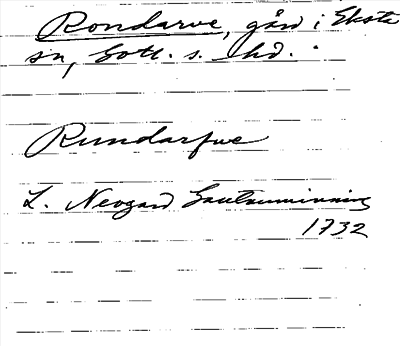 Rondarve, gård i Eksta
sn, Gotl. s. hd.
Rundarfve
L. Neogard Gautauminning
1732